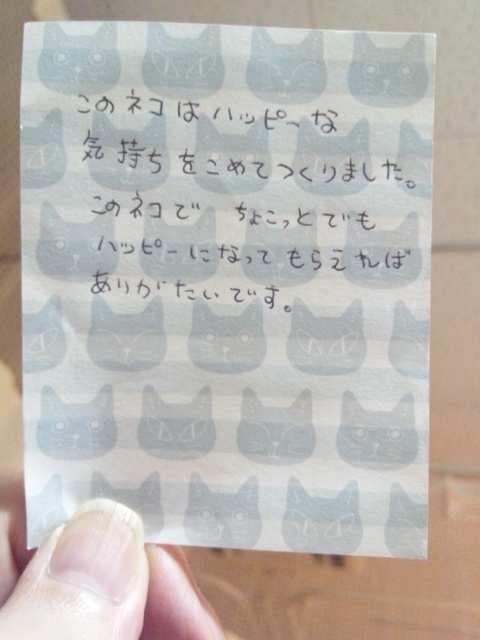 このネコはハッピーな
気持ちをこめてつくりました。
このネコで ちょこっとでも
ハッピーになってもらえれば
ありがたいです。